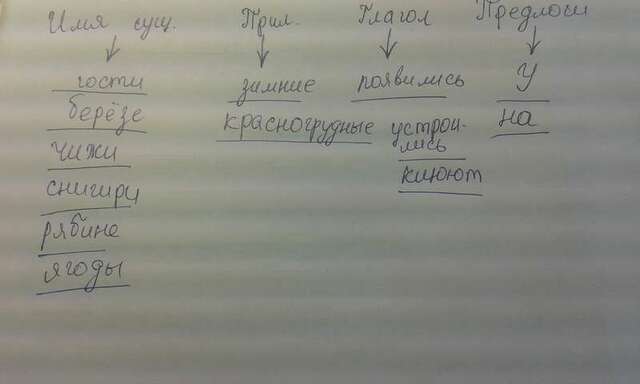 Имя сущ. Прил. Глагол Предлоги
гости зимние появились У
берёзе красногрудные устрои- на
чижи лись
снигири клюют
рябине
ягоды